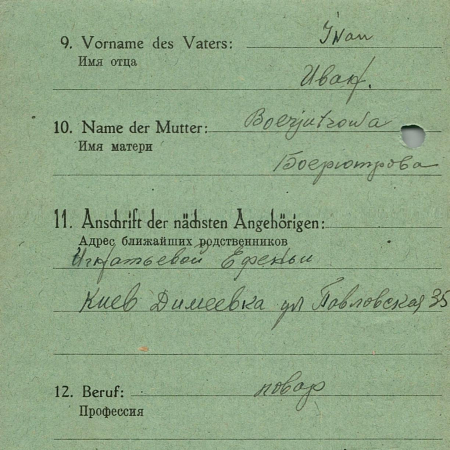 9. Vorname des Vaters: Iwan
Имя отца
Иван.
10. Name der Mutter: Boerjutrowa
Имя матери
Боерютрова
11. Anschrift der nächsten Angehörigen:
Адрес ближайших родственников
Игнатьевой Ефеньи
Киев Димеевка ул Павловская 35
12. Beruf: повар
Профессия